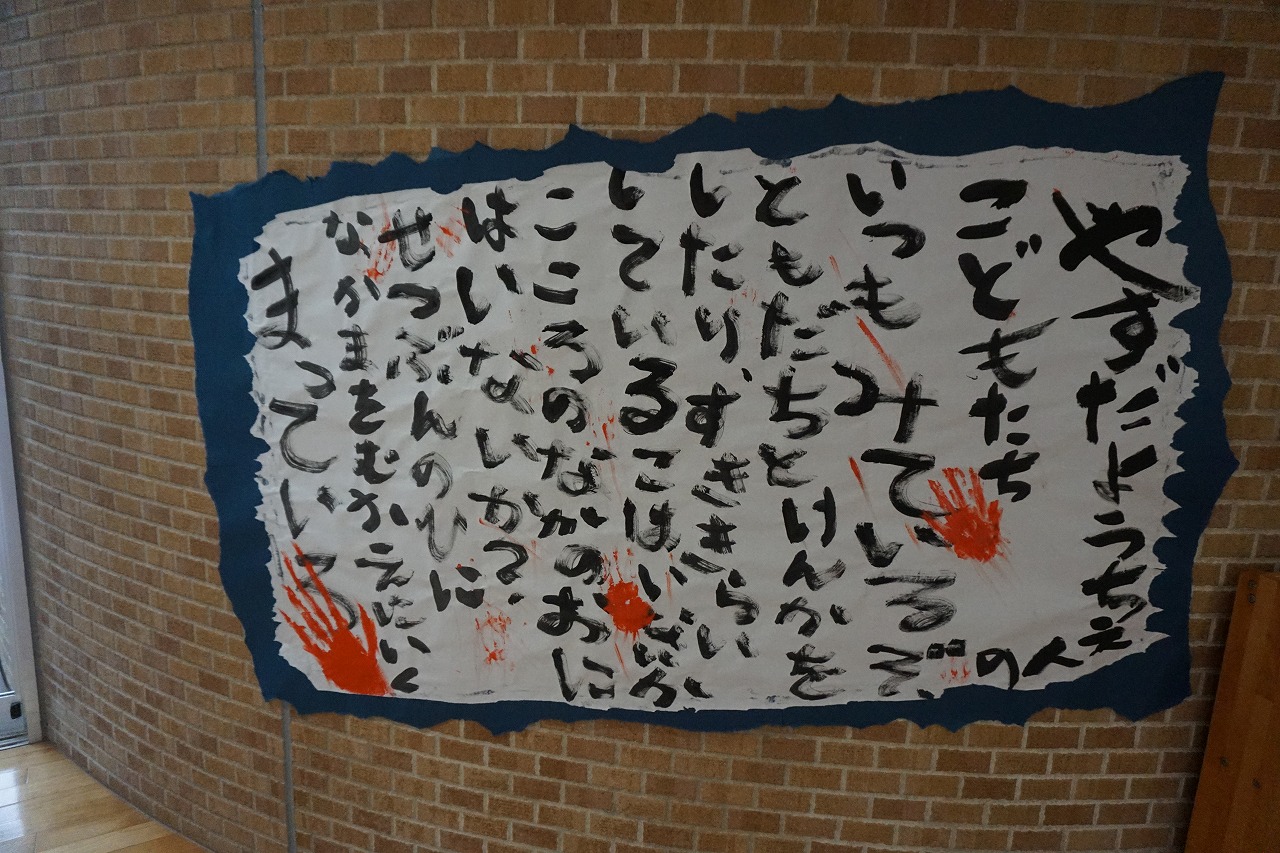 やすだようちえんの
こどもたち
いつもみているぞ。
ともだちとけんかを
したりずききらい
しているこはいないか
こころのなかのおに
はいないか?
せつぶんのひに、
なかまをむかえにいく
まっている